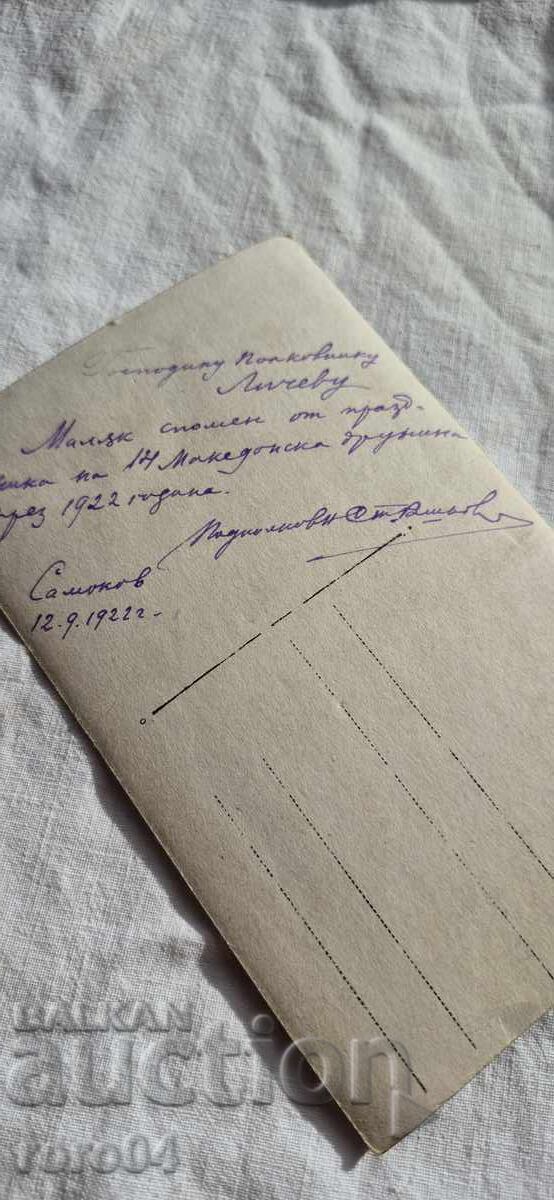 Господину Полковнику
Личеву
Малък спомен от празд-
ника на 14 Македонска дружина
през 1922 година.
Подполковн.
Самоков
12.9.1922 г.
BALKAN
auction
voro04